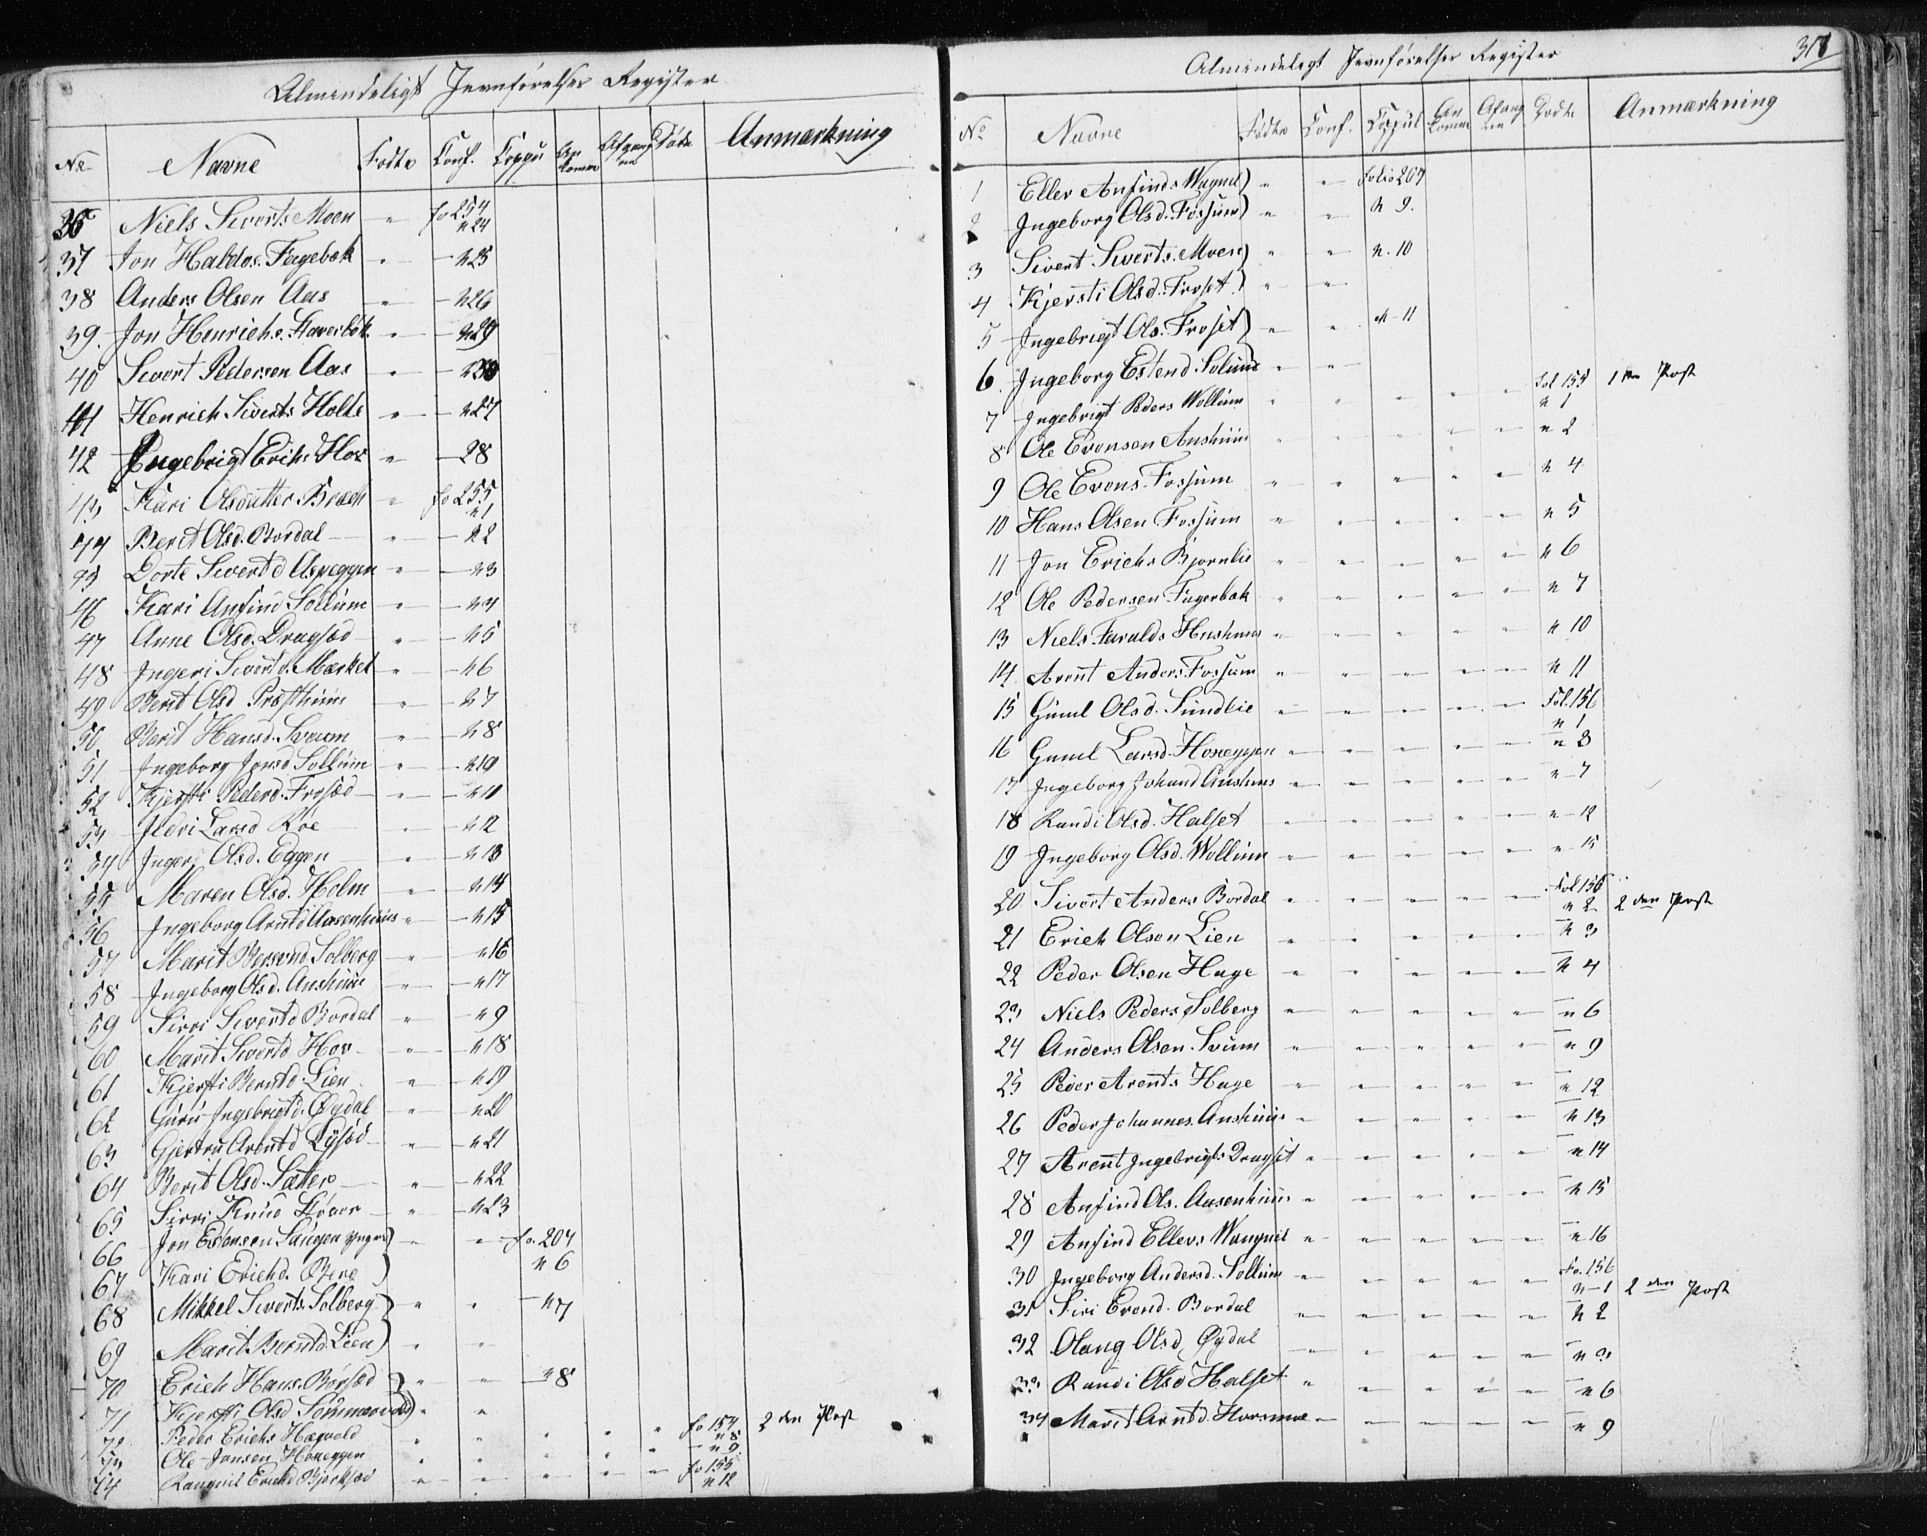 Almindeligt Jevnførelses Register
No Navne Fødte Conf. Coppu An komne Afgang ne Døde Anmærkning
36 Niels Siverts. Moen " fo 254 n 24
37 Jon Haldos. Fagebæk " — n 25
38 Anders Olsen Aas " — n 26
39. Jon Henrichs. Haverbæk " — n 29
40 Sivert Pedersen Aas " — n 30
41 Henrich Siverts Holte " — n 27
42 Ingebrigt Erichs Hov " — 28
43 Kari Olsdatter Bræch " fo 255 n 1
44 Berit Olsd. Bordal — " — n 2
45 Dorte Sivertd Aspeggen " — n 3
46 Kari Anfind Sollium " — n 4
47 Anne Olsd. Dragsæd " — n 5
48 Ingeri Sivertd. Mærket " — n 6
49 Berit Olsd Præsthuus " — n 7
50 Berit Hansd. Svum " — n 8
51 Ingeborg Jonsd Sollium " — n 10
52 Kjersti Pederd. Frosæd " — n 11
53 Ildri Larsd Roe " — n 12
54 Ingeri Olsd. Eggen " — n 13
55 Maren Olsd. Holm " — n 14
56 Ingeborg Arntd Aasenhuus " — n 15
57 Marit Bersvnd Solberg " — n 16
58 Ingeborg Olsd. Anshuus " — n 17
59 Sirri Sivertd Bordal " — n 9
60 Marit Sivertd Hov " — n 18
61 Kjersti Berntd. Lien " — n 19
62 Guru Ingebrigtd. Øydal " — n 20
63 Gjertru Arentd Lysæd " — n 21
64 Berit Olsd. Sætter " — n 22
65 Sirri Knud Høver " — n 23
66 Jon Estensen Langen yngre) " " fo. 204 n 6
67 Kari Erichd. Berg )
68 Mikkel Siverts. Solberg " " — n 7
69 Marit Berntd. Lien) " "
70 Erich Hans. Børsæd " " — n 8
71 Kjersti Olsd Sommervold) " "
72 Peder Erichs Hægvold " " " " " fo 154 n 8 2 den Post
73 Ole Jonsen Honeggen " " " " " — n 9
74 Rangnil Erichd Bjerksæd " " " " " fo 155 n 12
Almindelegt Jevnførelses Register 318
No Navne Fødte Conf. Coppul An komne Afang ne Dødte Anmærkning
1 Eller Anfinds Wagnel) " " Folio 207
2 Ingeborg Olsd. Fossum) " " n 9.
3 Sivert Siverts. Moen) " " n. 10
4 Kjersti Olsd. Froset ) " "
5 Ingebrigt Ols. Froset) " " n 11
6. Ingeborg Estend Solium " "
7 Ingebrigt Peders Wollum " " " " " Fol 155 n 1 1 ste Post
8 Ole Evensen Anshuus " " " " " n 2
9 Ole Evens. Fossum " " " " " n 4
10 Hans Olsen Fossum " " " " " n 5
11 Jon Erichs Bjørnlie " " " " " n 6
12 Ole Pedersen Fagerbæk " " " " " n 7
13 Niels Taralds Hushuus " " " " " n 10
14. Arent Anders. Fossum " " " " " n 11
15 Gunil Olsd. Sundlie " " " " " Fol. 156 n 1
16 Gunil Larsd. Honeggen " " " " " n 3
17 Ingeborg Johand Anshuus " " " " " n 7
18 Randi Olsd. Halset " " " " " n 12
19 Ingeborg Olsd. Wollum " " " " " n 15
20 Sivert Anders Bordal " " " " " Fol 156 n 2 2 den Post
21 Erich Olsen Lien " " " " " n 3
22 Peder Olsen Hage " " " " " n 4
23 Niels Peders Solberg " " " " " n 6
24 Anders Olsen. Svum " " " " " n 9
25 Peder Arents Hage " " " " " n 12
26 Peder Johannes. Anshuus " " " " " n 13
27 Arent Ingebrigts Dragset " " " " " n 14
28 Anfind Ols. Aasenhuus " " " " " n 15
29 Anfind Ellers Wangnil " " " " " n 16
30 Ingeborg Andersd. Sollium " " " " " Fo. 156 n 1 2 den Post
31 Siri Evend. Bordal " " " " " n 2
32 Olaug Olsd. Øydal " " " " " n 3
33 Randi Olsd Halset " " " " " n 6
34 Marit Arntd. Horsmoe " " " " " n 9